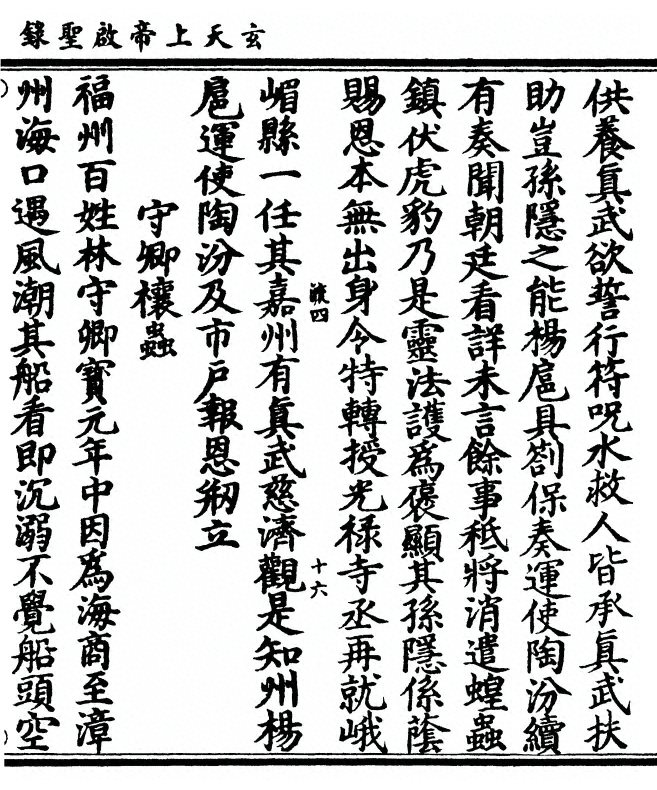 玄天上帝啟聖錄
供養真武欲誓行符呪水救人皆承真武扶
助豈孫隱之能楊扈具劄保奏運使陶汾續
有奏聞朝廷看詳未言餘事秪將消遣蝗蟲
鎮伏虎豹乃是靈法護為褒顯其孫隱係蔭
賜恩本無出身今特轉授光祿寺丞再就峨
十六
嵋縣一任其嘉州有真武慈濟觀是知州楊
扈運使陶汾及市戶報恩剏立
守卿禳蟲
福州百姓林守卿寶元年中因為海商至漳
州海口遇風潮其船看即沉溺不覺船頭空